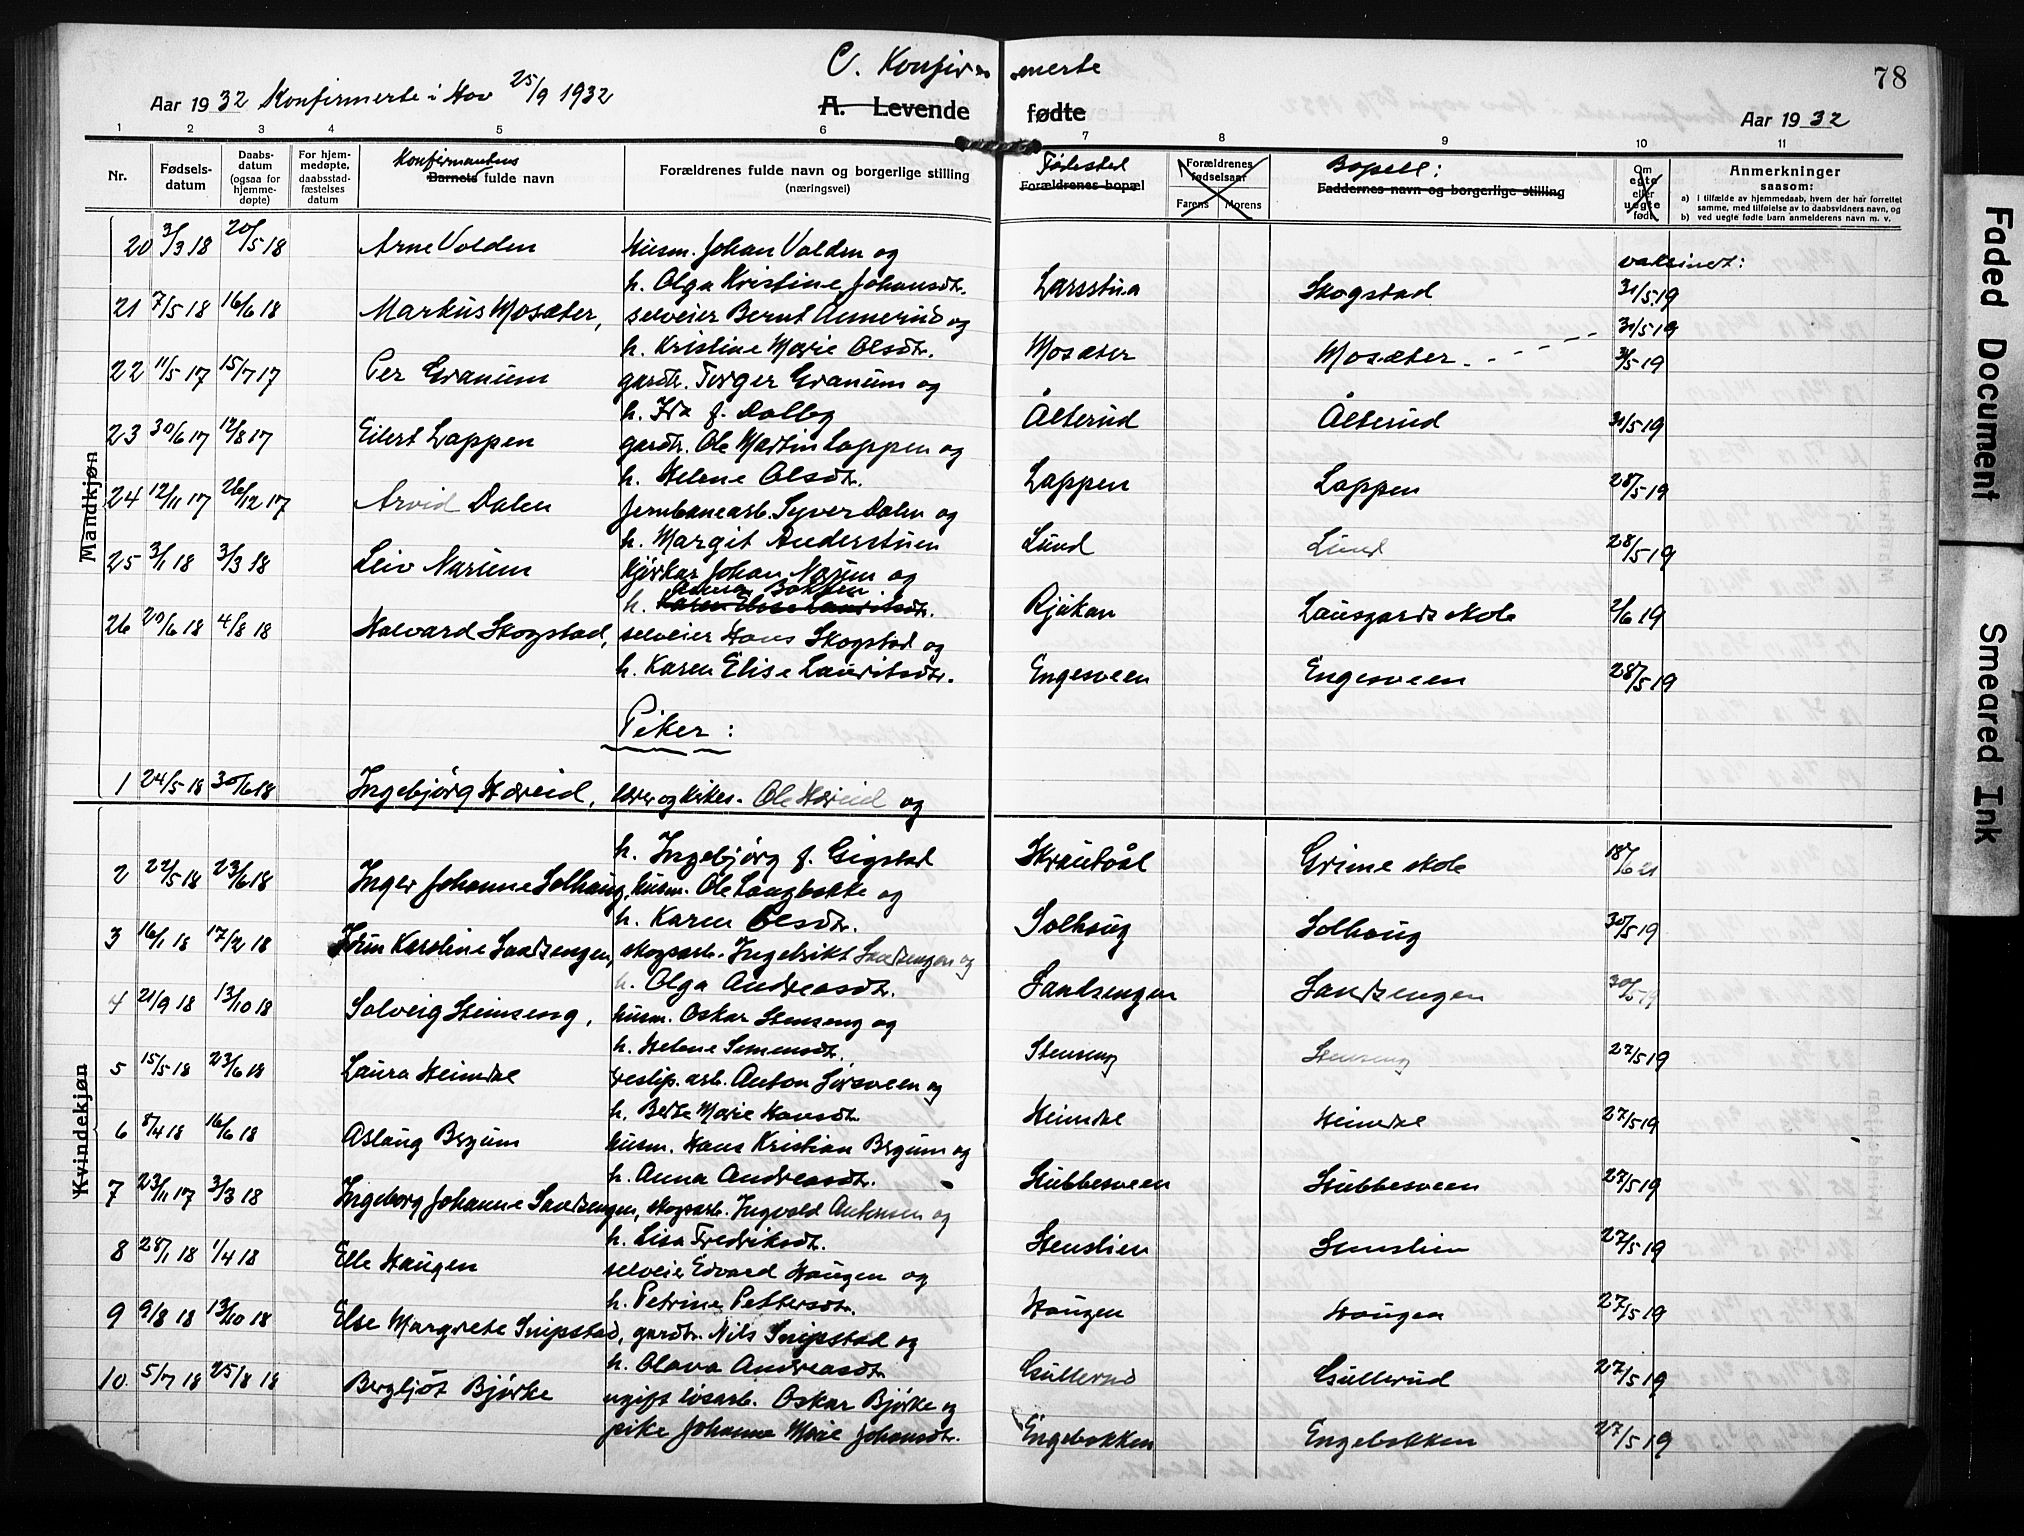 C. Konfirmerte
78
Aar 1932 Konfirmerte i Hov 25/9 1932
A. Levende fødte
Aar 1932
1 2 3 4 5 6 7 8 9 10 11
Nr.
Fødsels-datum
Daabs-datum (ogsaa for hjemme-døpte)
For hjem-medøpte, daabsstad-fæstelses datum
Konfirmantens
Barnets fulde navn
Forældrenes fulde navn og borgerlige stilling (næringsvei)
Fødested
Forældrenes bopæl
Forældrenes fødselsaar
Farens Morens
Bopæl:
Faddernes navn og borgerlige stilling
Om egte eller uegte født
Anmerkninger
saasom:
a) i tilfælde av hjemmedaab, hvem der har forrettet samme, med tilføielse av to daabsvidners navn, og
b) ved uegte fødte barn anmelderens navn m. v.
Mandkjøn
20 3/3 18 20/5 18 Arne Volden husm. Johan Volden og
vaksinert:
h. Olga Kristine Johansdtr. Larsstua Skogstad 31/5 19
21 7/5 18 16/6 18 Markus Mosæter, selveier Bernt Annerud og 31/5 19
h. Kristine Marie Olsdtr. Mosæter Mosæter 31/5 19
22 11/5 17 15/7 17 Per Granum gardbr. Torger Granum og
h. Ida f. Dalby Ålterud Ålterud 31/5 19
23 30/6 17 12/8 17 Eilert Lappen gardbr. Ole Martin Lappen og
h. Helene Olsdtr. Lappen Lappen 28/5 19
24 12/11 17 26/12 17 Arvid Dalen jernbanearb. Syver Dalen og
h. Margit Anderstuen Lund Lund 28/5 19
25 3/1 18 3/3 18 Leiv Narum kjørkar Johan Narum og
Anna Bakken
h. Karen Elise Lauritsdtr. Rjukan Lausgards skole 2/6 19
26 20/6 18 4/8 18 Halvard Skogstad, selveier Hans Skogstad og
h. Karen Elise Lauritsdtr. Engesveen Engesveen 28/5 19
Piker:
1 24/5 18 30/6 18 Ingebjörg Hæreid, lærer og kirkes. Ole Hæreid og
Kvindekjøn
h. Ingebjörg f. Gigstad Skrautvål Grime skole 18/6 21
2 22/5 18 23/6 18 Inger Johanne Solhaug, husm. Ole Langbakke og
h. Karen Olsdtr. Solhaug Solhaug 30/5 19
3 16/1 18 17/2 18 Jorun Karoline Sandsengen, skogsarb. Ingebrikt Sandsengen og
h. Olga Andreasdtr. Sandsengen Sandsengen 30/5 19
4 21/9 18 13/10 18 Solveig Stenseng, husm. Oskar Stenseng og
h. Helene Simensdtr. Stenseng Stenseng 27/5 19
5 15/5 18 23/6 18 Laura Heimdal treslip. arb. Anton Sørsveen og
h. Berte Marie Hansdtr. Heimdal Heimdal 27/5 19
6 8/4 18 16/6 18 Aslaug Bergum husm. Hans Kristian Bergum og
h. Anna Andreasdtr. Stubbesveen Stubbesveen 27/5 19
7 23/11 17 3/3 18 Ingeborg Johanne Sandsengen, skogsarb. Ingvald Antonsen og
h. Lisa Fredriksdtr. Stenslien Stenslien 27/5 19
8 28/1 18 1/4 18 Elle Haugen selveier Edvard Haugen og
h. Petrine Pettersdtr. Haugen Haugen 27/5 19
9 9/8 18 13/10 18 Else Margrete Snipstad, gardbr. Nils Snipstad og
h. Olava Andreasdtr. Gullerud Gullerud 27/5 19
10. 5/7 18 25/8 18 Bergljöt Björke ugift løsarb. Oskar Björke og
pike Johanne Marie Johansdtr. Engebakken Engebakken 27/5 19
Faded Document
Smeared Ink